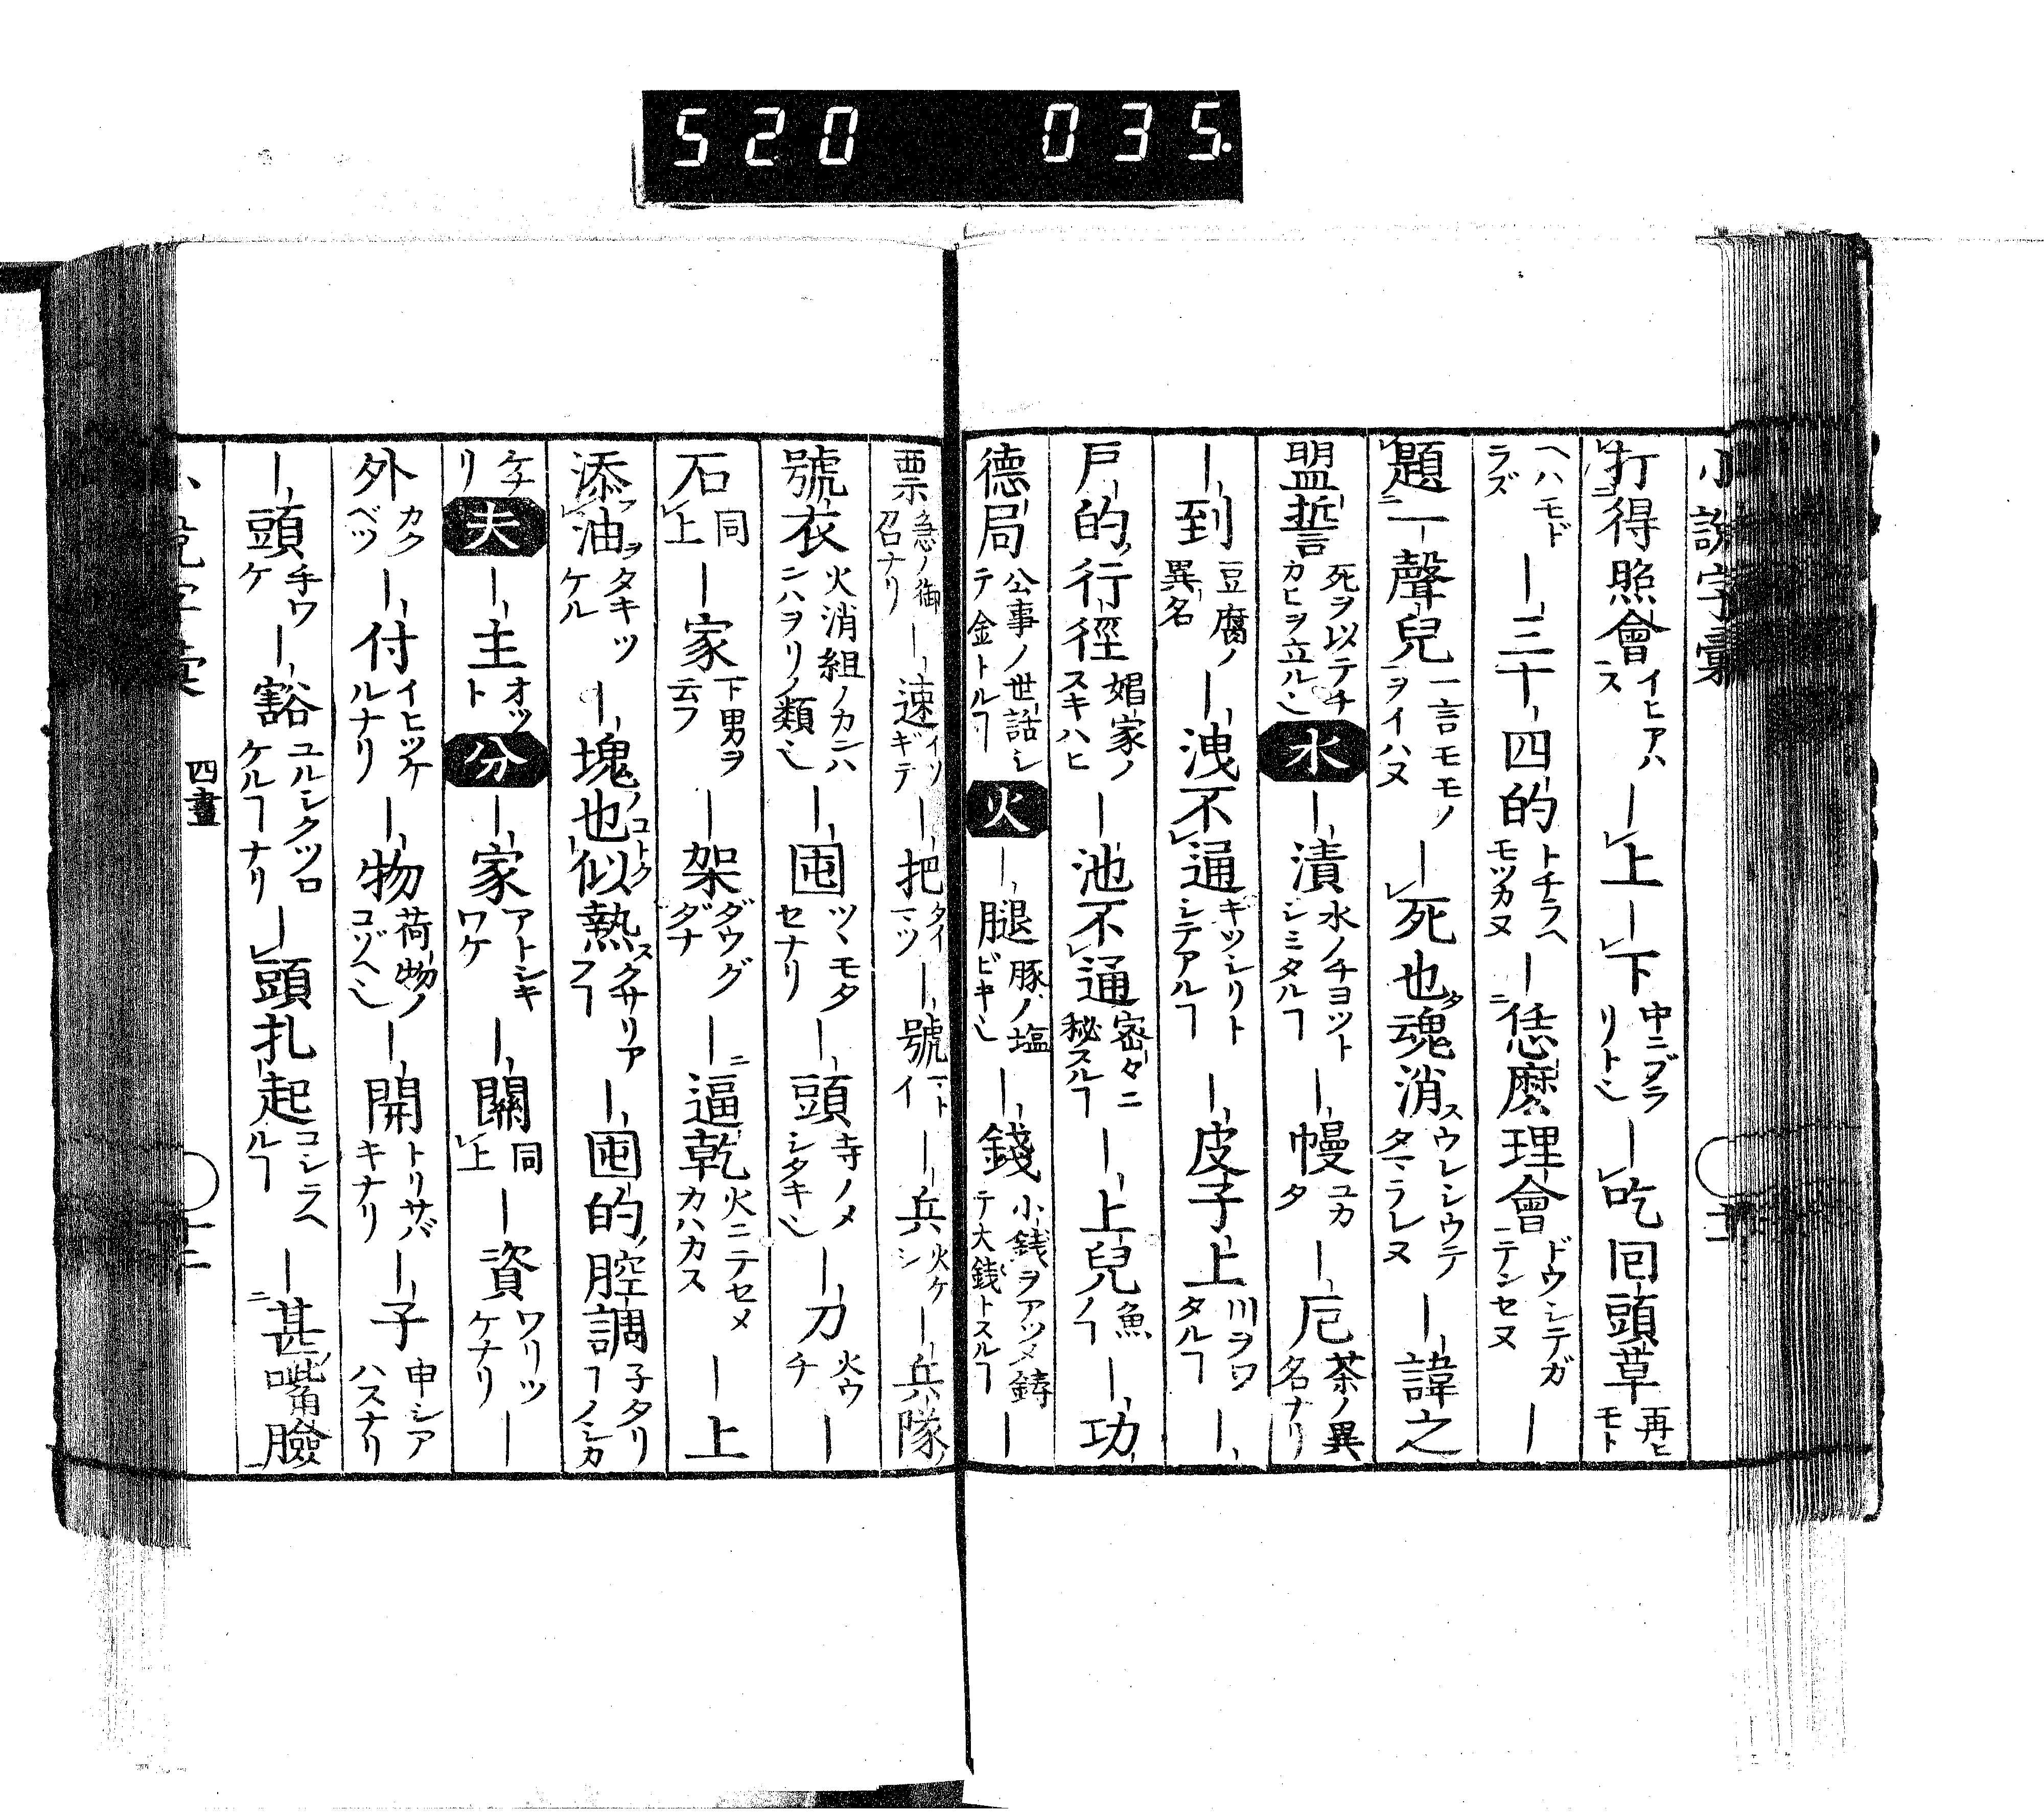 520 035.
小説字彙
打得照會イヒアハス｜上｜下中ニブラリト乄｜吃囘頭草再ヒモト
ヘハモドラズ｜三十四的トチラヘモツカヌ｜恁麽理會ドウシテガテンセヌ｜
題一聲兒一言モモノヲイハヌ｜死也魂消ウレシウテタマラレヌ｜諱之
盟誓死ヲ以テチカヒヲ立ル也水｜漬水ノチヨツトシミタルヿ｜幔ユカタ｜厄茶ノ異名ナリ
｜到豆腐ノ異名｜洩不通キツシリトシテアルヿ｜皮子上川ヲワタルヿ｜
戸的行徑娼家ノスキハヒ｜池不通密々ニ秘スルヿ｜上兒魚ノヿ｜功
德局公事ノ世話シテ金トルヿ火｜腿豚ノ塩ビキ也｜錢小銭ヲアツメ鋳テ大銭トスルヿ｜
票急ノ御召ナリ｜速イソギテ｜把タイマツ｜號｜兵火ケシ｜兵隊
號衣火消組ノカンハニハヲリノ類也｜囤ツヽモタセナリ｜頭寺ノメシタキ也｜刀火ウチ｜
石同上｜家下男ヲ云フ｜架ダウグダナ｜逼乾火ニテセメカハカス｜上
添油タキツケル｜塊也似熱クサリアフヿ｜囤的腔調子タリヿノシカ
ケナリ夫｜主オット分｜家アトシキワケ｜關同上｜資ワリツケナリ｜
外カクベツ｜付イヒツケルナリ｜物荷物ノコゾヘ也｜開トリサバキナリ｜子申シアハスナリ
｜頭手ワケ｜豁ユルシクツロケルヿナリ｜頭扎起コシラヘルヿ｜甚嘴臉
四畫
十二